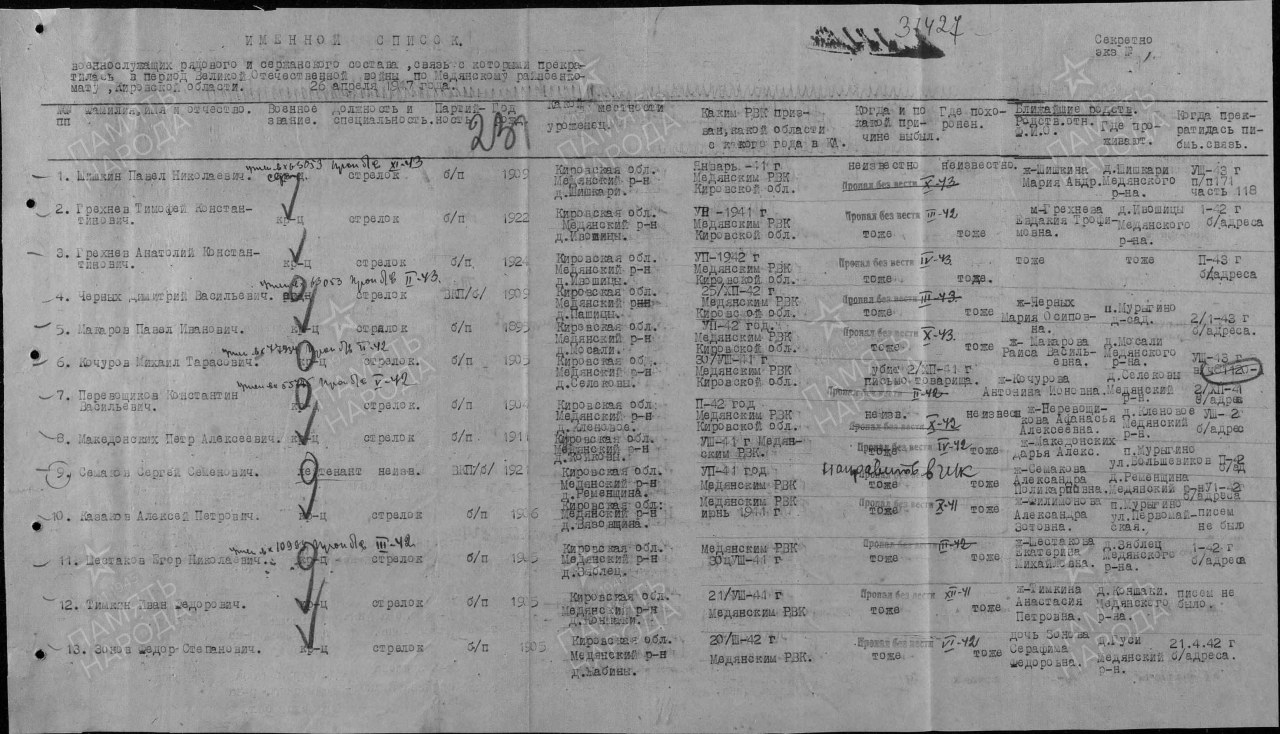 31427
ИМЕННОЙ СПИСОК.
Секретно
экз №
военнослужащих рядового и сержанского состава ,связь с которыми прекра-
тилась в период Великой Отечественной войны по Медянскому райвоенко-
мату ,Кировской области. 26 апреля 1947 года.
№№ пп Фамилия,имя и отчество. Военное звание. Должность и специальность. Партий- ность Год Какой местности уроженец. Каким РВК приз- ван,какой области с какого года в КА. Когда и по какой при- чине выбыл. Где похо- ронен. Ближайшие родств. Родств.отн. Ф.И.О. Где про- живают. Когда прек- ратилась пи- сьм.связь.
1. Шишкин Павел Николаевич. стрелок б/п 1909 Кировская обл. Медянский р-н д.Шишкари. Январь -41 г Медянским РВК Кировской обл. неизвестно неизвестно. Пропал без вести X-43 ж-Шишкина Мария Авдр. д.Шишкари Медянского р-на. УШ-43 г п/п171 часть 118
2. Грехнев Тимофей Констан- тинович. кр-ц стрелок б/п 1922 Кировская обл. Медянский р-н д.Ивошицы. -1941 г Медянским РВК Кировской обл. Пропал без вести III-42 тоже тоже м-Грехнева Евдакия Трофи- мовна. д.Ивошицы Медянского р-на. 1-42 г б/адреса
3. Грехнев Анатолий Констан- тинович. кр-ц стрелок б/п 1924 Кировская обл. Медянский р-н д.Ивошицы. УП-1942 г Медянским РВК Кировской обл. Пропал без вести IV-43 тоже тоже. тоже тоже П-43 г б/адреса
4. Черных Димитрий Васильевич. стрелок ВКП/б/ 1909 Кировская обл. Медянский рнн д.Пашицы. 25/ХП-42 г Медянским РВК Кировской обл. Пропал без вести III-43 тоже тоже ж-Черных Мария Осипов- на. п.Мурыгино д-сад. 2/1-43 г б/адреса.
5. Макаров Павел Иванович. кр-ц стрелок б/п 1895 Кировская обл. Медянский р-н д.Мосали. УП-42 год. Медянским РВК Кировской обл. Пропал без вести X-43 тоже тоже ж- Макарова Раиса Василь- евна. д.Мосали Медянского р-на. УШ-43 г
6. Кочуров Михаил Тарасович. стрелок. б/п 1905 Кировская обл. Медянский р-н д.Селековы. 30/УШ-41 г Медянским РВК Кировской обл. убит 2/XI-41 письмо товарища. ж-Кочурова Антонина Ионовна. д.Селековы Медянский р-н.
7. Перевощиков Константин Васильевич. стрелок. б/п Кировская обл. Медянский р-н д.Кленовое. П-42 год Медянским РВК Кировской обл. неизв. неизвесн Пропал без вести X-42 ж-Перевощи- кова Афанасья Алексеевна. д.Кленовое Медянский р-н. УШ- 2 б/адрес
8. Македонских Петр Алексеевич. кр-ц стрелок б/п 1911 Кировская обл. Медянский р-н УШ-41 г Медян- ским РВК. Пропал без вести IV-42 тоже тоже ж-Македонских Дарья Алекс. п.Мурыгино ул.Большевиков П-42
9. Семаков Сергей Семенович. лейтенант неизв. ВКП/б/ 1921 Кировская обл. Медянский р-н д.Ременщина. УП-41 год Медянским РВК направить в тоже тоже ж-Семакова Александра Поликарповна. д.Ременщина Медянский р-н У1-42 б/адреса
10. Казаков Алексей Петрович. кр-ц стрелок б/п 1906 Кировская обл. Медянский р-н д.Власищина. Медянским РВК июнь 1941 г Пропал без вести X-41 тоже тоже ж-Филимонова Александра Зотовна. п.Мурыгино ул.Первомай- ская. писем не было
11. Шестаков Егор Николаевич. кр-ц стрелок б/п 1905 Кировская обл. Медянский р-н д.Зяблец. Медянским РВК Пропал без вести III-42 тоже тоже ж-Шестакова Екатерина Михайловна. д.Зяблец Медянского р-на. 1-42 г б/адреса
12. Тимкин Иван Федорович. кр-ц стрелок б/п 1905 Кировская обл. Медянский р-н 21/УШ-41 г Медянским РВК Пропал без вести XII-41 тоже тоже ж-Тимкина Анастасия Петровна. Медянского р-на. писем не было.
13. Зонов Федор Степанович. кр-ц стрелок б/п 1905 Кировская обл. Медянский р-н д.Бабины. 20/Ш-42 г Медянским РВК. Пропал без вести VI-42 тоже тоже дочь Зонова Серафима Федоровна. д.Гуси Медянский р-н. 21.4.42 г б/адреса.
ПАМЯТЬ НАРОДА